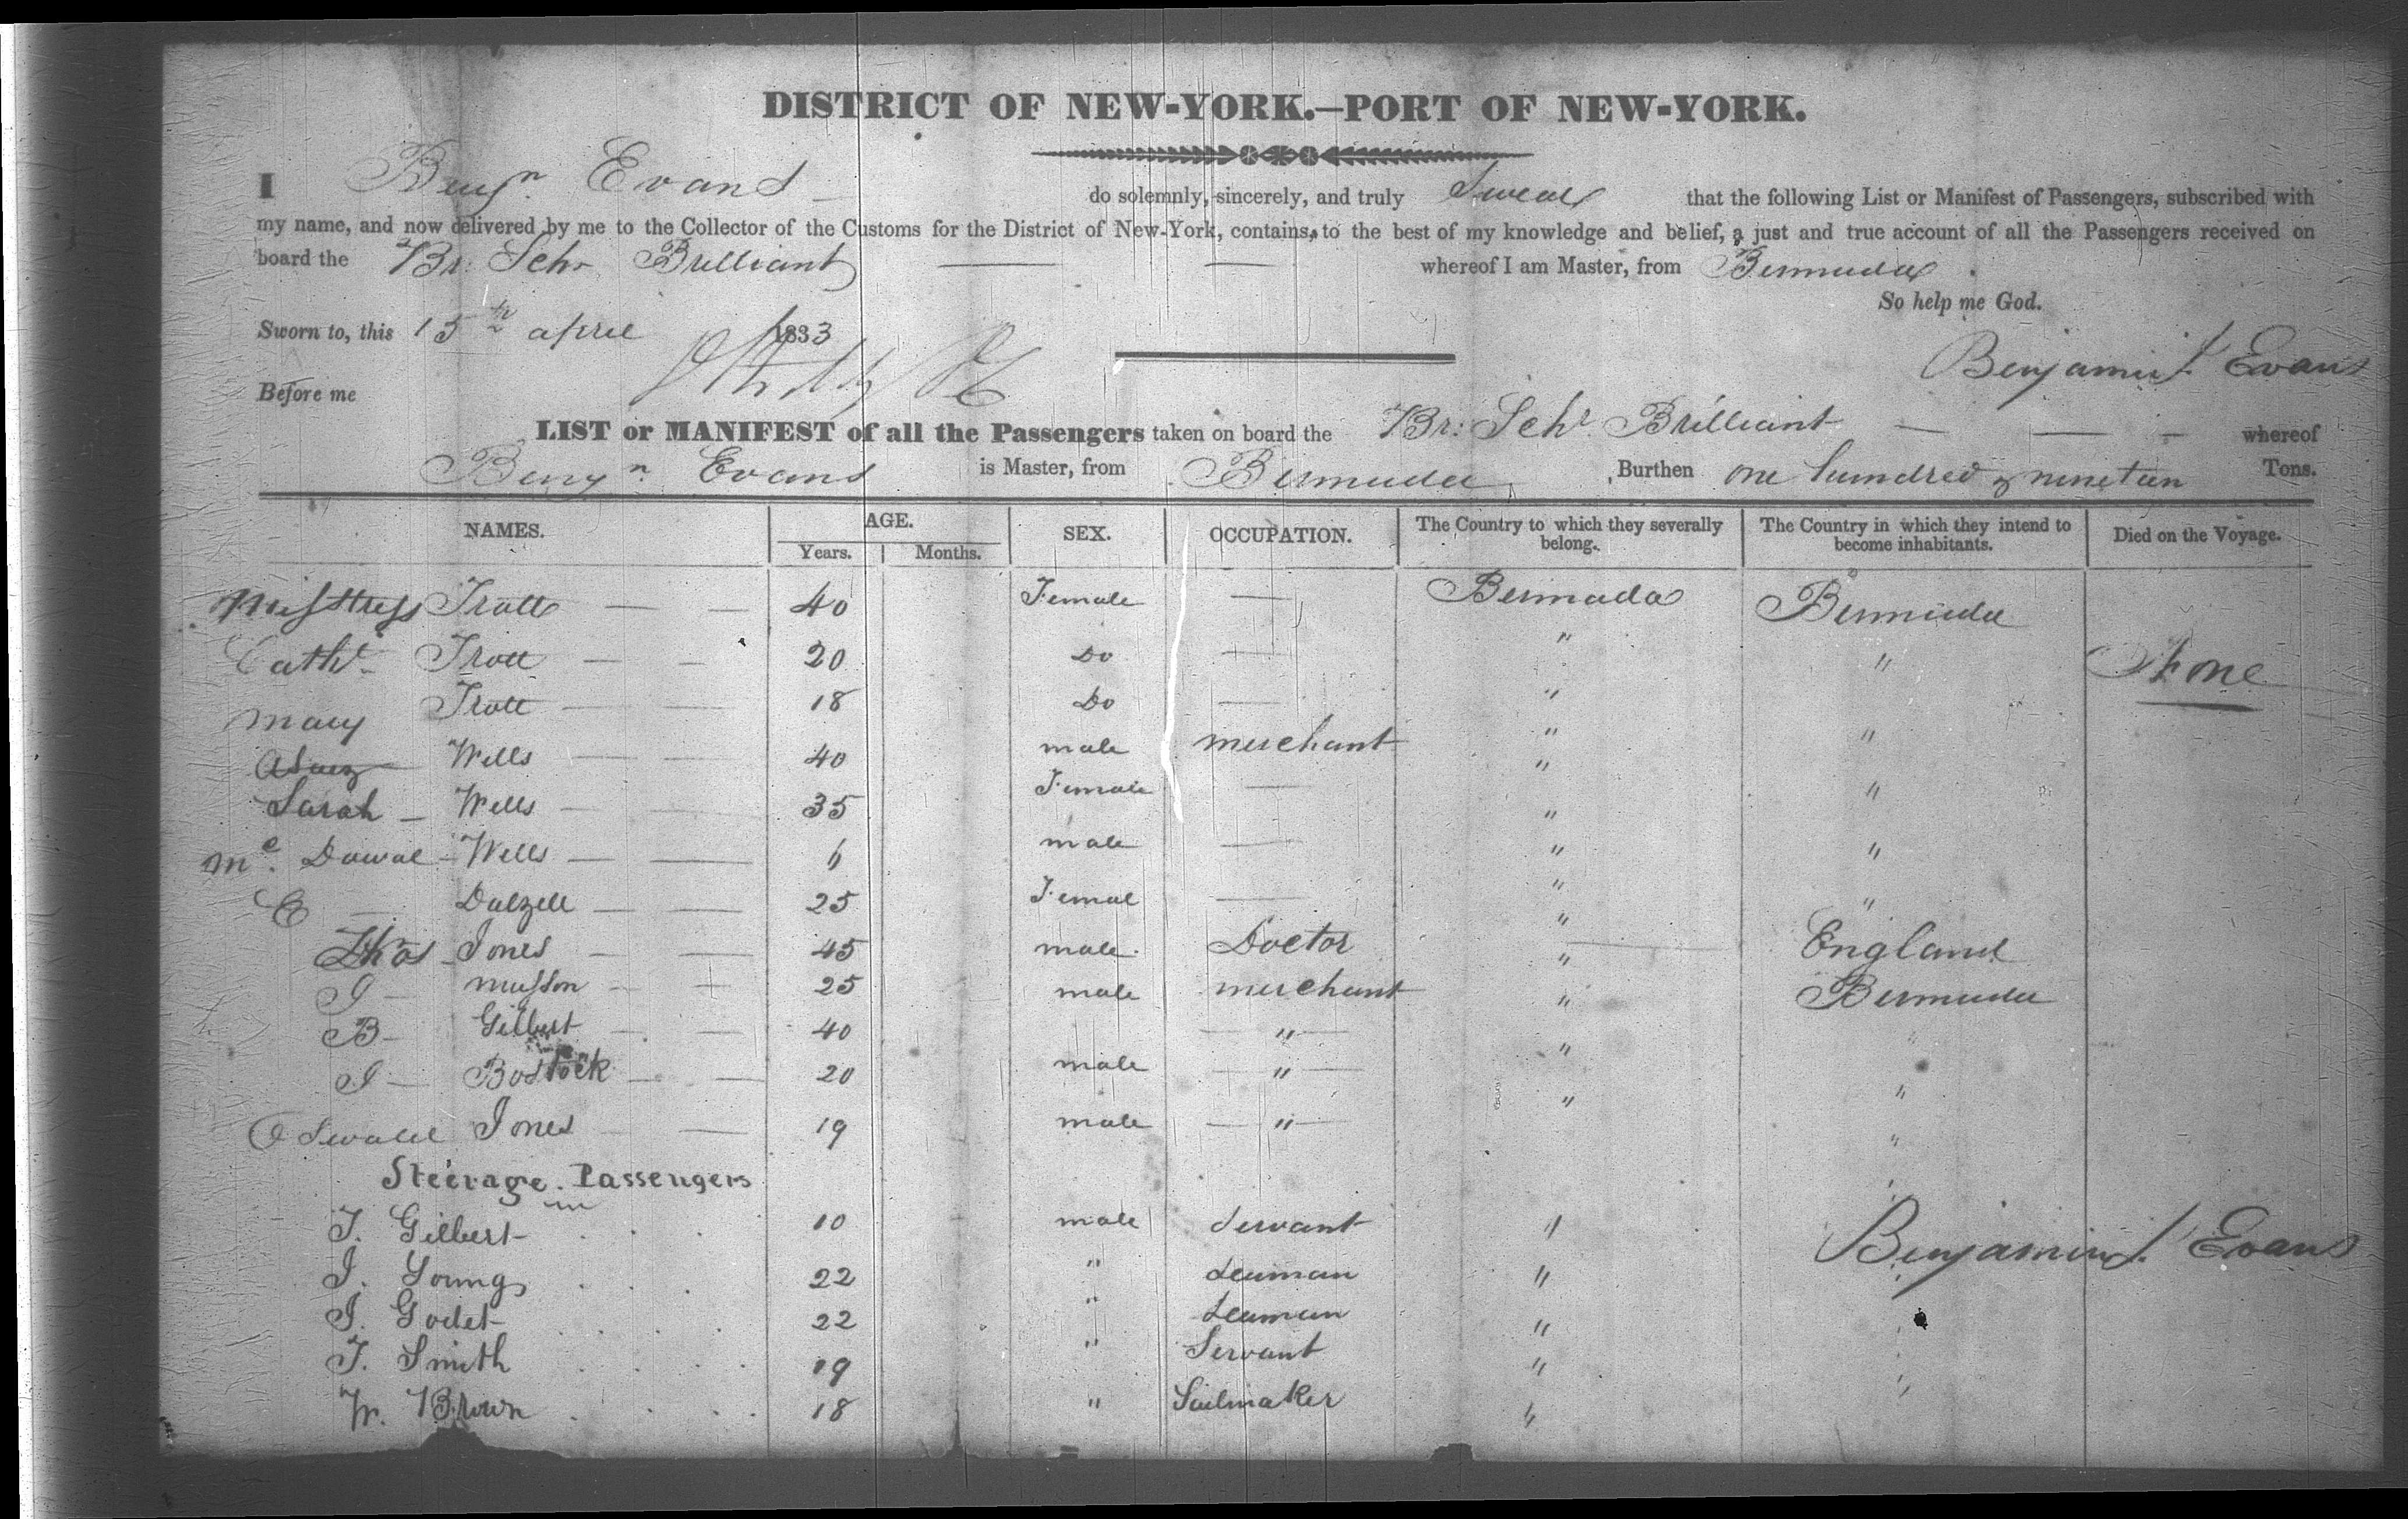 DISTRICT OF NEW-YORK.—PORT OF NEW-YORK.
I Benjn Evans do solemnly, sincerely, and truly Swear that the following List or Manifest of Passengers, subscribed with
my name, and now delivered by me to the Collector of the Customs for the District of New-York, contains, to the best of my knowledge and belief, a just and true account of all the Passengers received on
board the Br: Schr Brilliant whereof I am Master, from Bermuda.
So help me God.
Sworn to, this 15th april 1833
Benjamin J. Evans
Before me
LIST or MANIFEST of all the Passengers taken on board the Br: Schr Brilliant — — — whereof
Benjn Evans is Master, from Bermuda, Burthen one hundred & nineteen Tons.
NAMES. AGE. SEX. OCCUPATION. The Country to which they severally belong. The Country in which they intend to become inhabitants. Died on the Voyage.
Years. Months.
Misstress Trott — — 40 Female — Bermuda Bermuda
Cathe Trott — — 20 Do — " " None
Mary Trott — — 18 Do — "
Wells — — 40 male merchant " "
Sarah — Wells — — 35 Female — " "
Mc. Dowal - Wells — — 6 male — " "
E — Dalzell — — 25 Femal — " "
Thos Jones — — 45 male Doctor " England
J — Musson — — 25 male merchant " Bermuda
B — Gilbert — — 40 " " "
J — Bostock — — 20 male " " "
Oswald Jones — — 19 male " " "
Steerage Passengers
T. Gilbert 10 male servant "
Benjamin J. Evans
J. Young 22 " seaman "
J. Godet 22 " seaman "
T. Smith 19 " Servant "
W. Brown 18 " Sailmaker "